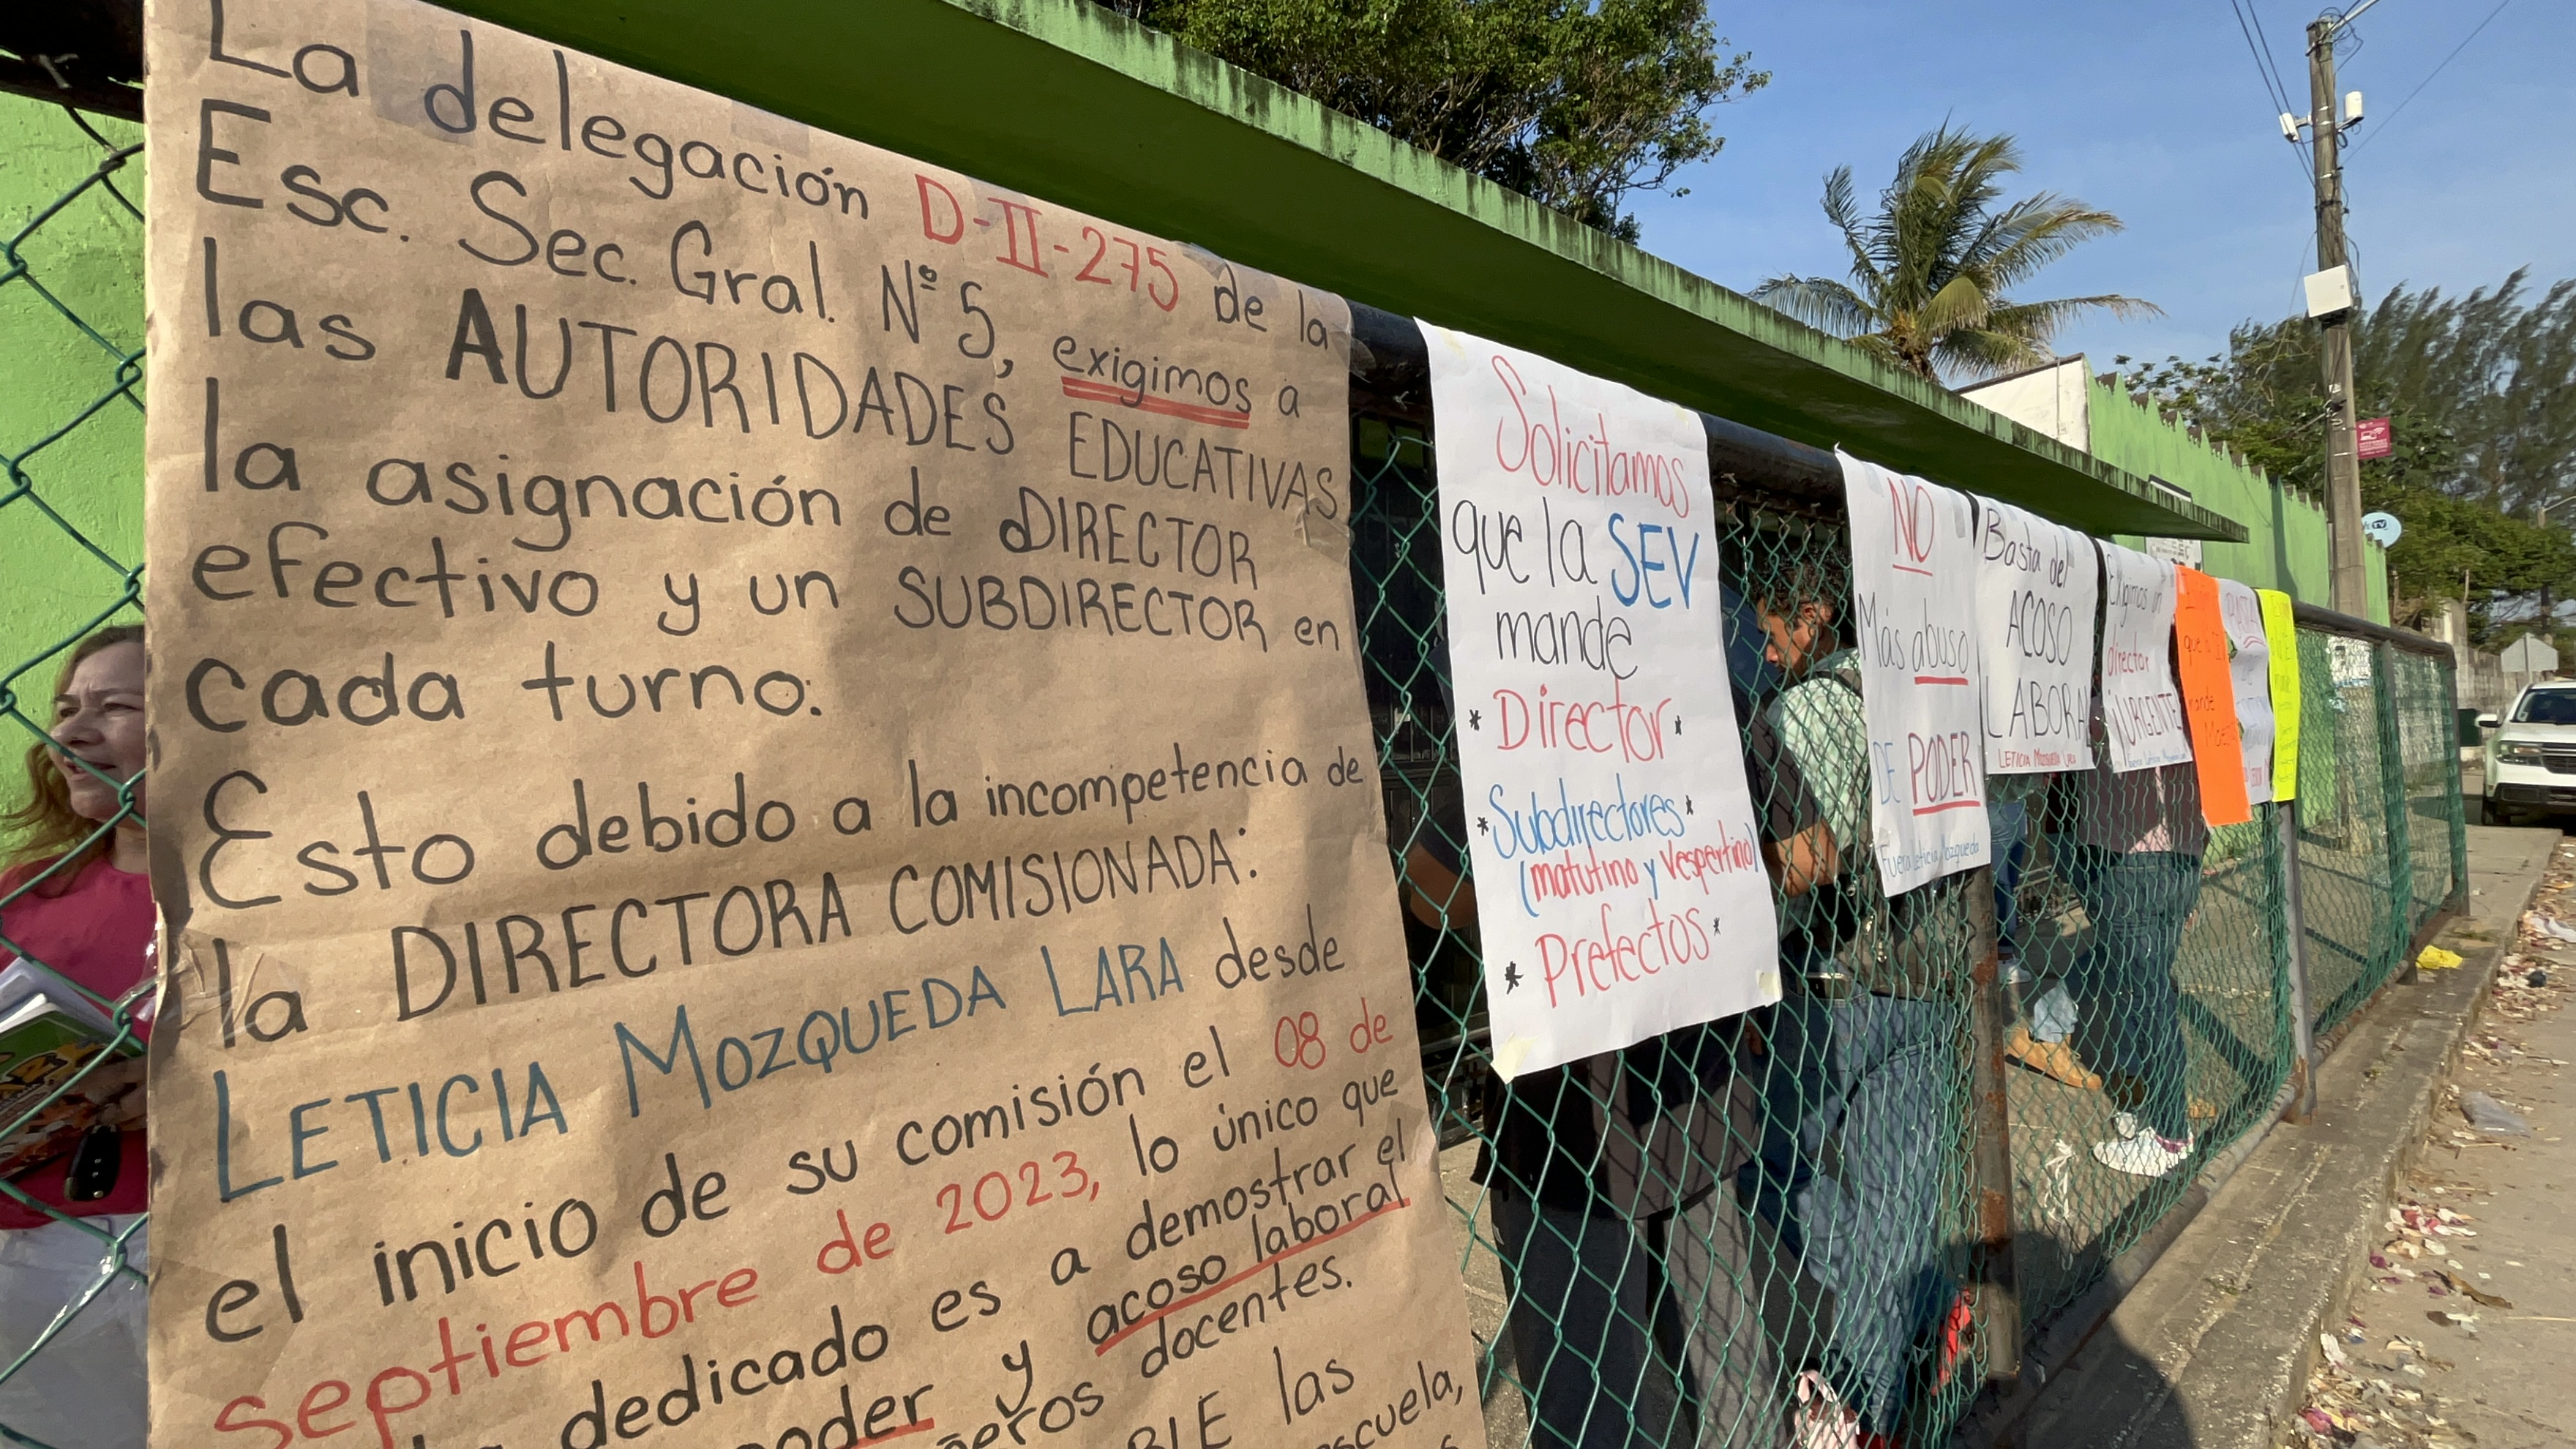 La delegación D-II-275 de la
Esc. Sec. Gral. Nº 5, exigimos a
las AUTORIDADES EDUCATIVAS
la asignación de DIRECTOR
efectivo y un SUBDIRECTOR en
cada turno.
Esto debido a la incompetencia de
la DIRECTORA COMISIONADA:
LETICIA MOZQUEDA LARA desde
el inicio de su comisión el 08 de
septiembre de 2023, lo único que
dedicado es a demostrar el
poder y acoso laboral
docentes.
las
Solicitamos
que la SEV
mande
* Director *
* Subdirectores *
(matutino y vespertino)
* Prefectos *
NO
Más abuso
DE PODER
Fuera Leticia Mozqueda
Basta del
ACOSO
LABORAL
LETICIA MOZQUEDA LARA
Exigimos un
director
¡URGENTE
que
mande